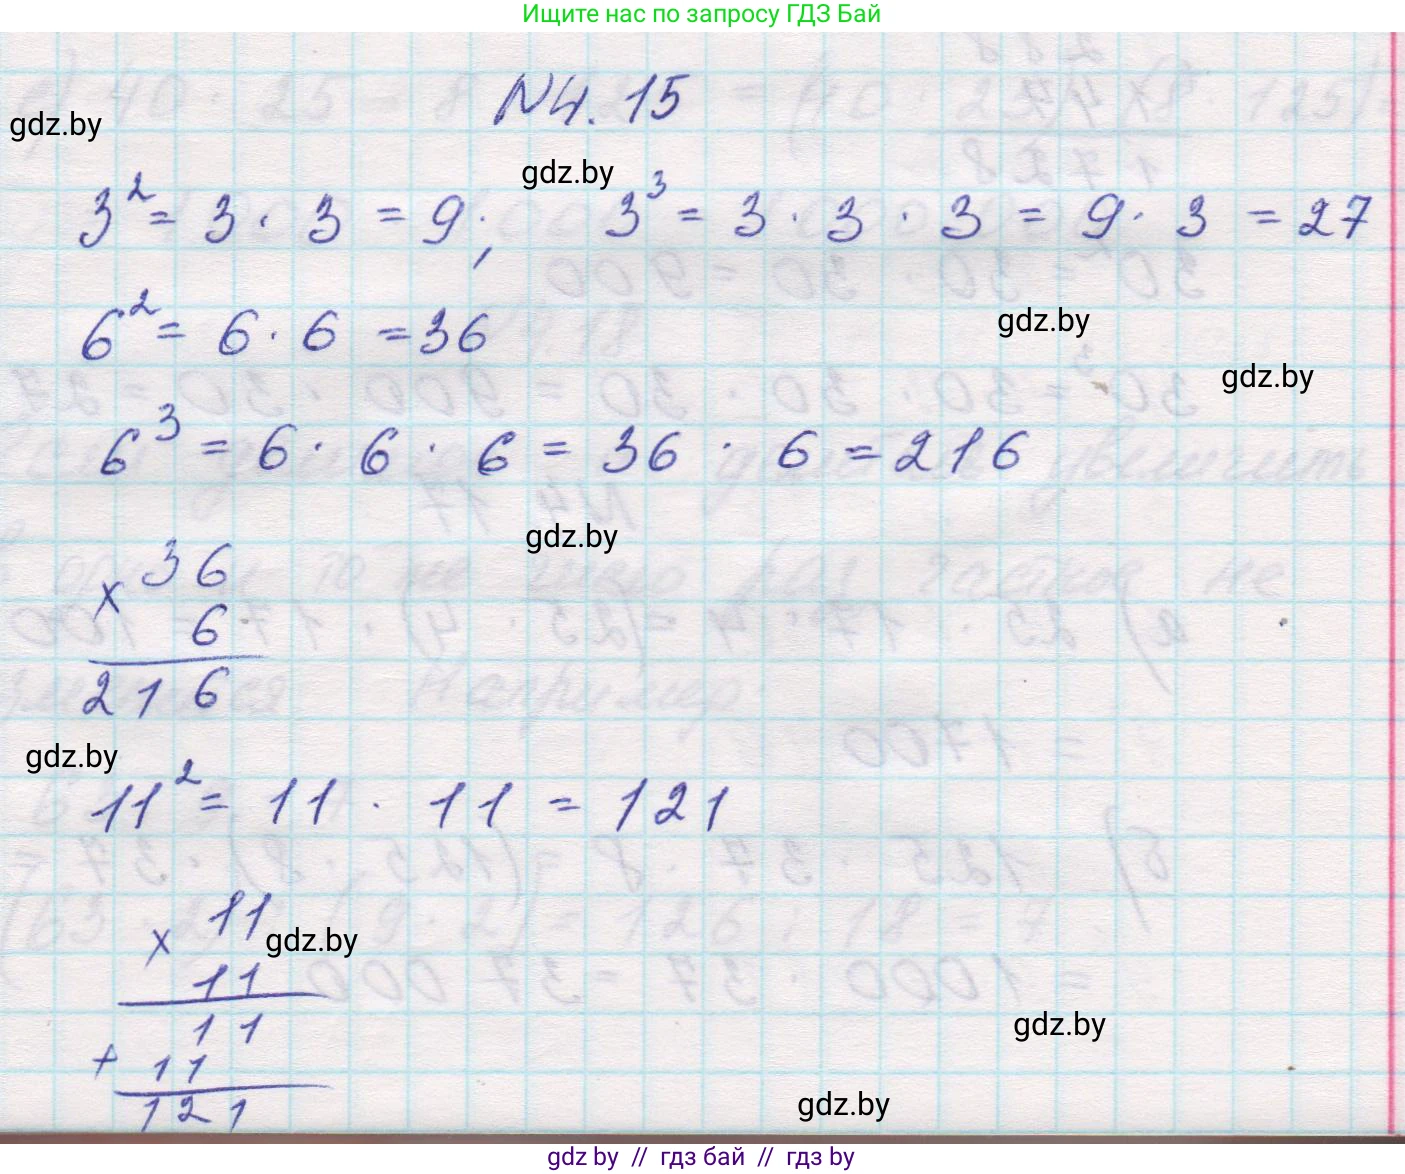 Ищите нас по запросу ГДЗ Бай
N4.15
gdz.by
gdz.by
3² = 3 · 3 = 9; 3³ = 3 · 3 · 3 = 9 · 3 = 27
6² = 6 · 6 = 36
gdz.by
gdz.by
6³ = 6 · 6 · 6 = 36 · 6 = 216
gdz.by
x 36
6
216
gdz.by
11² = 11 · 11 = 121
x 11
gdz.by
11
11
gdz.by
+ 11
121
gdz.by
gdz by // гдз бай // гдз by